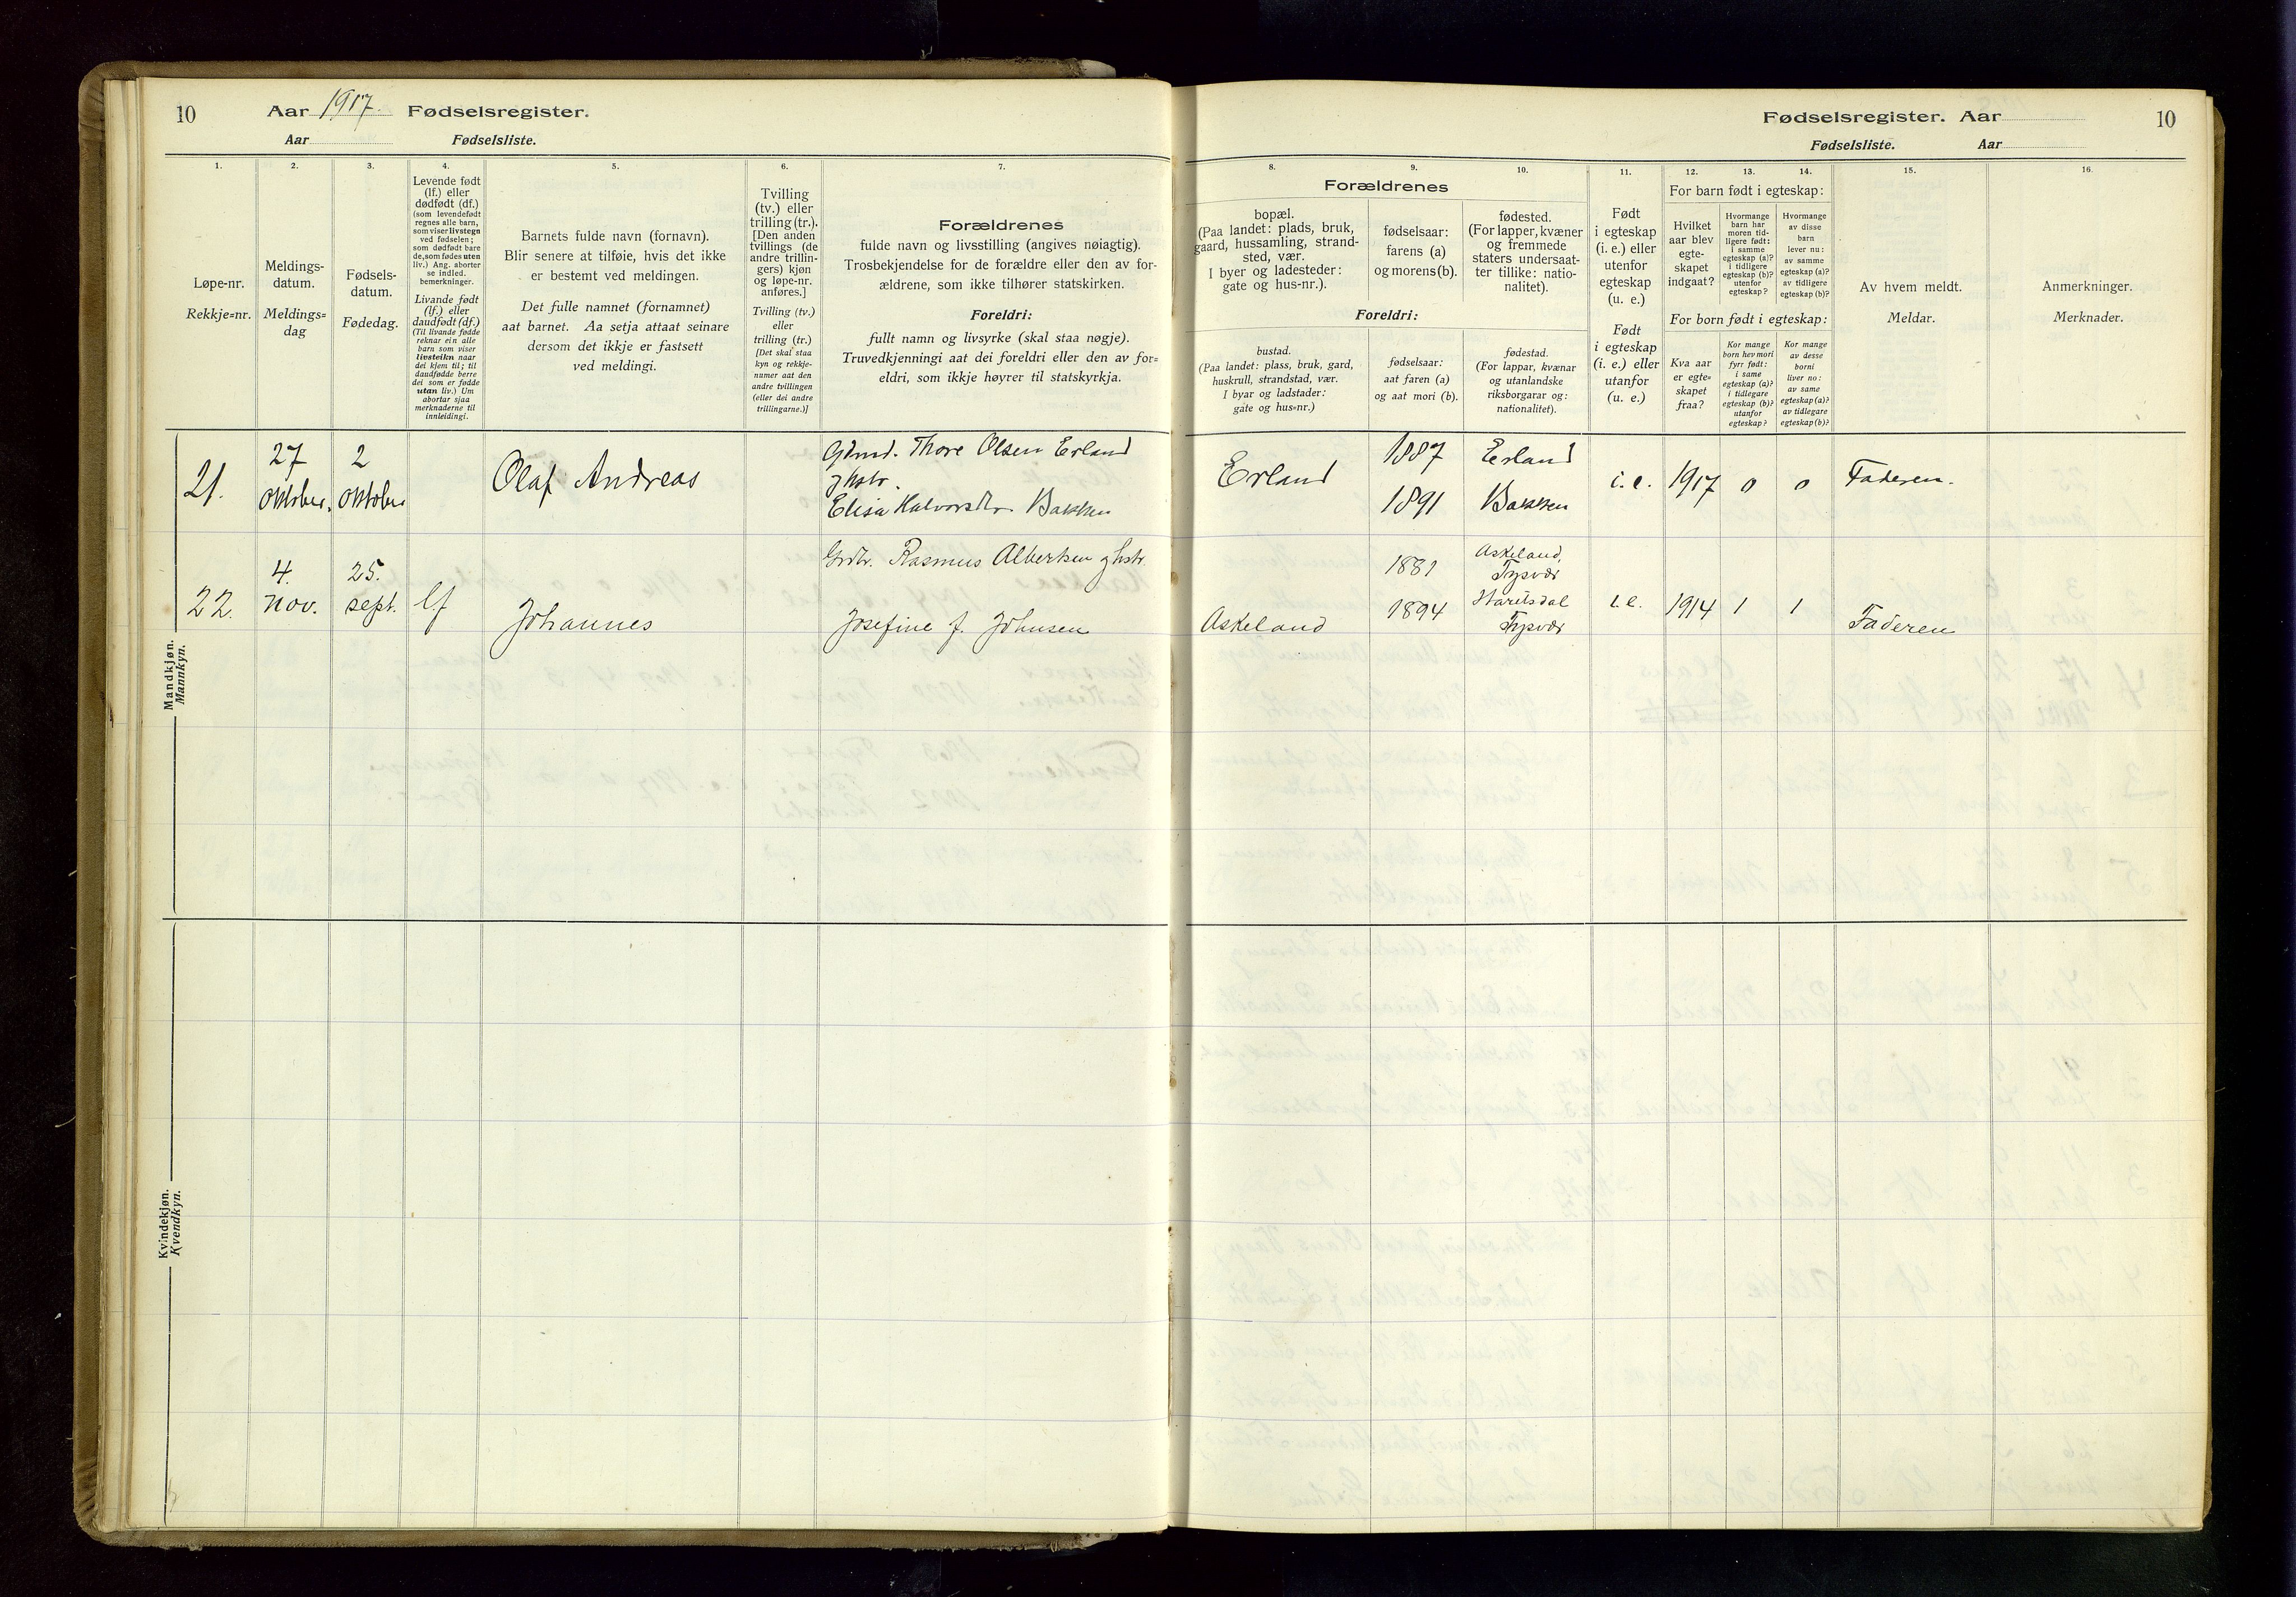 10
Aar 1917. Fødselsregister.
Aar Fødselsliste.
Fødselsregister. Aar
10
Fødselsliste. Aar
1.
2.
3.
4.
5.
6.
7.
8.
9.
10.
11.
12.
13.
14.
15.
16.
Løpe-nr.
Rekkje=nr.
Meldings-
datum.
Meldings=
dag
Fødsels-
datum.
Fødedag.
Levende født
(lf.) eller
dødfødt (df.)
(som levendefødt
regnes alle barn,
som viser livstegn
ved fødselen;
som dødfødt bare
de, som fødes uten
liv.) Ang. aborter
se indled.
bemerkninger.
Livande født
(lf.) eller
daudfødt (df.)
(Til livande fødde
reknar ein alle
barn som viser
livsteikn naar
dei kjem til; til
daudfødde berre
dei som er fødde
utan liv.) Um
abortar sjaa
merknaderne til
innleidingi.
Barnets fulde navn (fornavn).
Blir senere at tilføie, hvis det ikke
er bestemt ved meldingen.
Det fulle namnet (fornamnet)
aat barnet. Aa setja attaat seinare
dersom det ikkje er fastsett
ved meldingi.
Tvilling
(tv.) eller
trilling (tr.).
[Den anden
tvillings (de
andre trillin-
gers) kjøn
og løpe-nr.
anføres.]
Tvilling (tv.)
eller
trilling (tr.)
[Det skal staa
kyn og rekkje-
numer aat den
andre tvillingen
(eller dei andre
trillingarne.)]
Forældrenes
fulde navn og livsstilling (angives nøiagtig).
Trosbekjendelse for de forældre eller den av for-
ældrene, som ikke tilhører statskirken.
Foreldri:
fullt namn og livsyrke (skal staa nøgje).
Truvedkjenningi aat dei foreldri eller den av for=
eldri, som ikkje høyrer til statskyrkja.
Forældrenes
bopæl.
(Paa landet: plads, bruk,
gaard, hussamling, strand-
sted, vær.
I byer og ladesteder:
gate og hus-nr.).
fødselsaar:
farens (a)
og morens (b).
fødested.
(For lapper, kvæner
og fremmede
staters undersaat-
ter tillike: natio-
nalitet).
Foreldri:
bustad.
(Paa landet: plass, bruk, gard,
huskrull, strandstad, vær.
I byar og ladstader:
gate og hus=nr.)
fødselsaar:
aat faren (a)
og aat mori (b).
fødestad.
(For lappar, kvænar
og utanlandske
riksborgarar og:
nationalitet).
Født
i egteskap
(i. e.) eller
utenfor
egteskap
(u. e.)
Født
i egteskap
(i. e.) eller
utanfor
(u. e.)
For barn født i egteskap:
Hvilket
aar blev
egte-
skapet
indgaat?
Hvormange
barn har
moren tid-
ligere født:
i samme
egteskap (a)?
i tidligere
egteskap (b)?
utenfor
egteskap?
Hvormange
av disse
barn
lever nu:
av samme
egteskap (a)?
av tidligere
egteskap (b)?
For born født i egteskap:
Kva aar
er egte=
skapet
fraa?
Kor mange
born hev mori
fyrr født:
i same
egteskap (a)?
i tidlegare
egteskap (b)?
utanfor
egteskap?
Kor mange
av desse
borni
liver no:
av same
egteskap (a)?
av tidlegare
egteskap (b)?
Av hvem meldt.
Meldar.
Anmerkninger.
Merknader.
Mandkjøn.
Mannkyn.
21.
27
oktober.
2
oktober
Olaf Andreas
Gbrd. Thore Olsen Erland
ghstr.
Elisa Halvorsdtr Bakken
Erland
1887
1891
Erland
Bakken
i. e.
1917
0
0
Faderen.
22.
4.
nov.
25.
sept.
lf
Johannes
Rasmus Albertsen ghstr.
Josefine f. Johnsen
Askeland
1881
1894
Askeland,
Tysvær
Tysvær
i. e.
1914
1
1
Faderen
Kvindekjøn.
Kvendkyn.